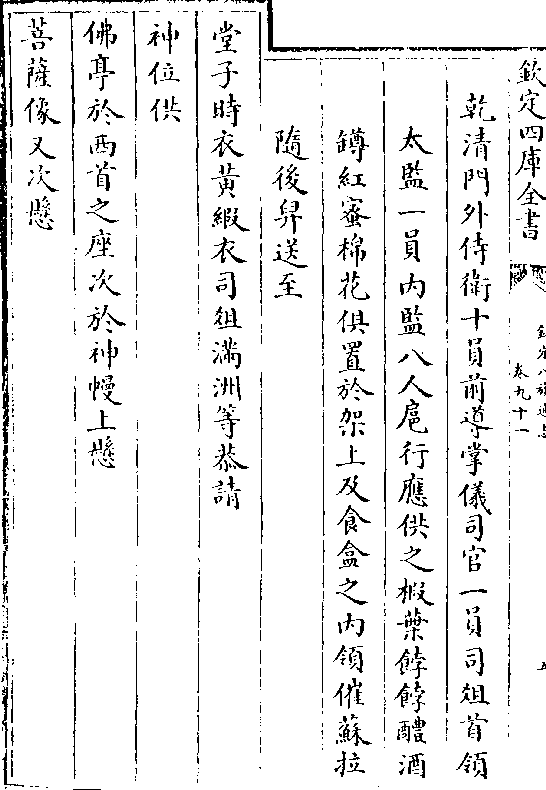 欽定四庫全書
欽定八旗通志
卷九十一
五
乾清門外侍衛十員前導掌儀司官一員司俎首領
太監一員内監八人扈行應供之椴葉餑餑醴酒
罇紅蜜棉花俱置於架上及食盒之内領催蘇拉
隨後舁送至
堂子時衣黃緞衣司俎滿洲等恭請
神位供
佛亭於西首之座次於神幔上懸
菩薩像又次懸